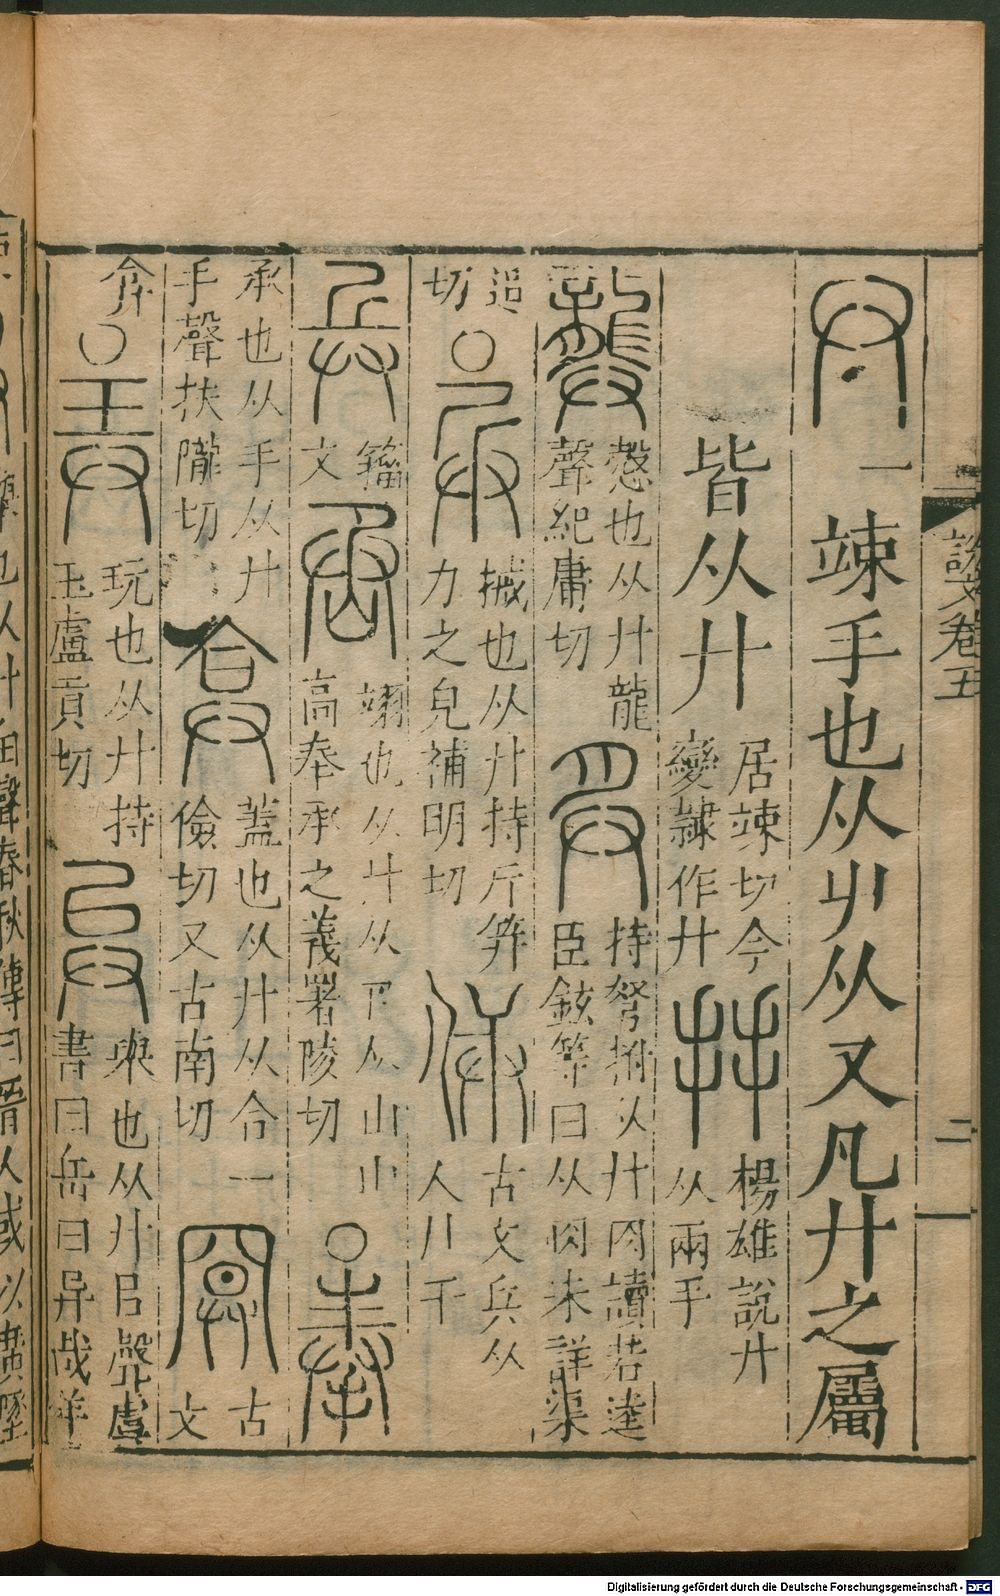 說文卷五 二
廾 竦手也从屮从又凡廾之屬
皆从廾 居竦切今變隸作廾 𢪒 楊雄說廾从兩手
龏 慤也从廾龍聲紀庸切 𢌳 持弩拊从廾肉讀若逵臣鉉等曰从肉未詳渠
追切○兵 械也从廾持斤并力之皃補明切 𠈯 古文兵从人廾干
兵 籀文 丞 翊也从廾从卪从山山高奉承之義署陵切○奉
承也从手从廾手聲扶隴切 弇 蓋也从廾从合一儉切又古南切 𢍏 古文
弇○弄 玩也从廾持玉盧貢切 异 舉也从廾㠯聲虞書曰岳曰异哉羊
也从廾由聲春秋傳曰晉人或以廣墜